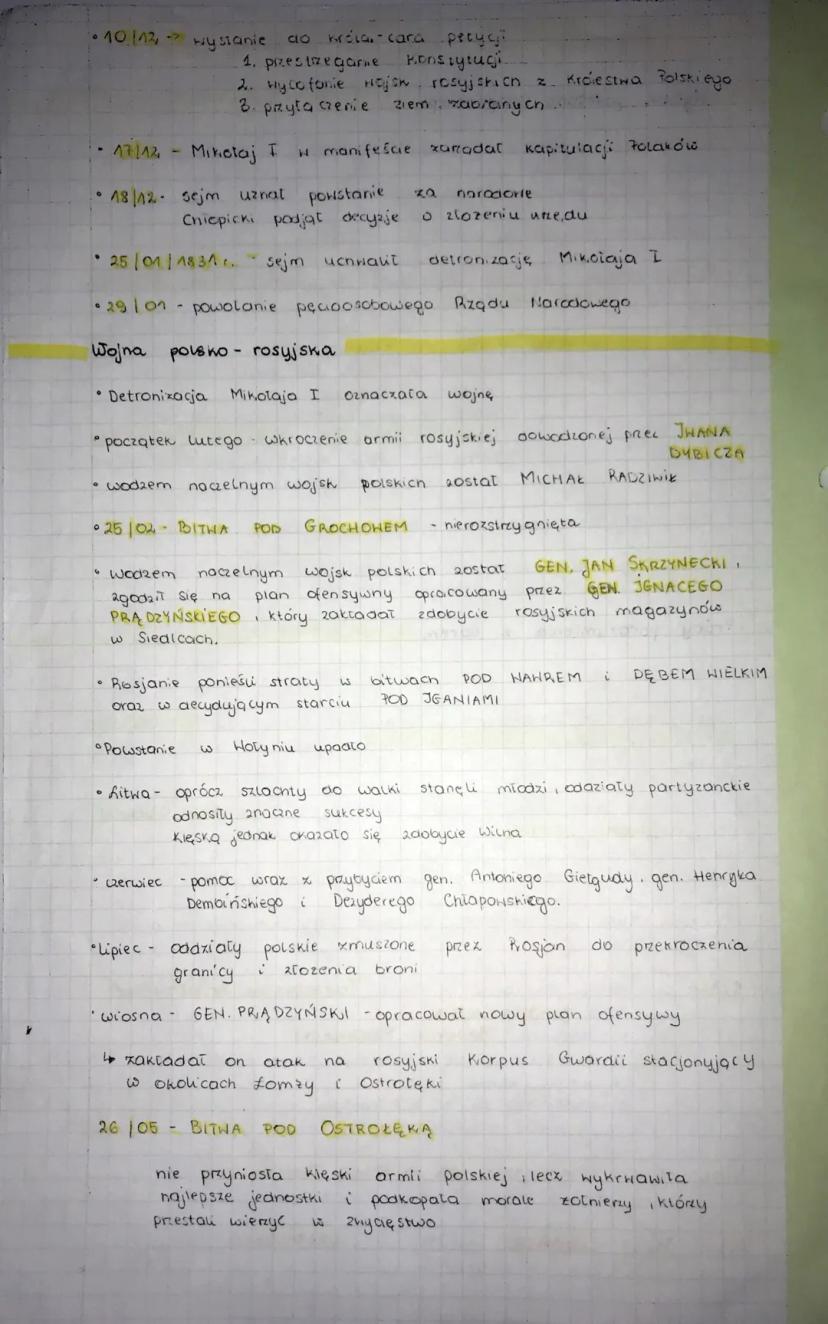 • 10/12 -> wysłanie do króla-cara petycji
1. przestrzeganie Konstytucji
2. wycofanie wojsk rosyjskich z Królestwa Polskiego
3. przyłączenie ziem zabranych
• 17/12 - Mikołaj I w manifeście zażądał kapitulacji Polaków
• 18/12 - sejm uznał powstanie za narodowe
Chłopicki podjął decyzje o złożeniu urzędu
• 25/01/1831r. - sejm uchwalił detronizację Mikołaja I
• 29/01 - powołanie pięcioosobowego Rządu Narodowego
Wojna polsko - rosyjska
• Detronizacja Mikołaja I oznaczała wojnę
• początek lutego - wkroczenie armii rosyjskiej dowodzonej przez IWANA
DYBICZA
• wodzem naczelnym wojsk polskich został MICHAŁ RADZIWIŁ
• 25/02 - BITWA POD GROCHOWEM - nierozstrzygnięta
• Wodzem naczelnym wojsk polskich został GEN. JAN SKRZYNECKI,
zgodził się na plan ofensywny opracowany przez GEN. IGNACEGO
PRĄDZYŃSKIEGO, który zakładał zdobycie rosyjskich magazynów
w Siedlcach.
• Rosjanie ponieśli straty w bitwach POD WAWREM i DĘBEM WIELKIM
oraz w decydującym starciu POD IGANIAMI
• Powstanie w Wołyniu upadło
• Litwa - oprócz szlachty do walki stanęli młodzi, oddziały partyzanckie
odnosiły znaczne sukcesy
Klęską jednak okazało się zdobycie Wilna
• czerwiec - pomoc wraz z przybyciem gen. Antoniego Giełgudy, gen. Henryka
Dembińskiego i Dezyderego Chłapowskiego.
• Lipiec - oddziały polskie zmuszone przez Rosjan do przekroczenia
granicy i złożenia broni
• wiosna - GEN. PRĄDZYŃSKI - opracował nowy plan ofensywy
↳ zakładał on atak na rosyjski Korpus Gwardii stacjonujący
w okolicach Łomży i Ostrołęki
26/05 - BITWA POD OSTROŁĘKĄ
nie przyniosła klęski armii polskiej, lecz wykrwawiła
najlepsze jednostki i podkopała morale żołnierzy, którzy
przestali wierzyć w zwycięstwo